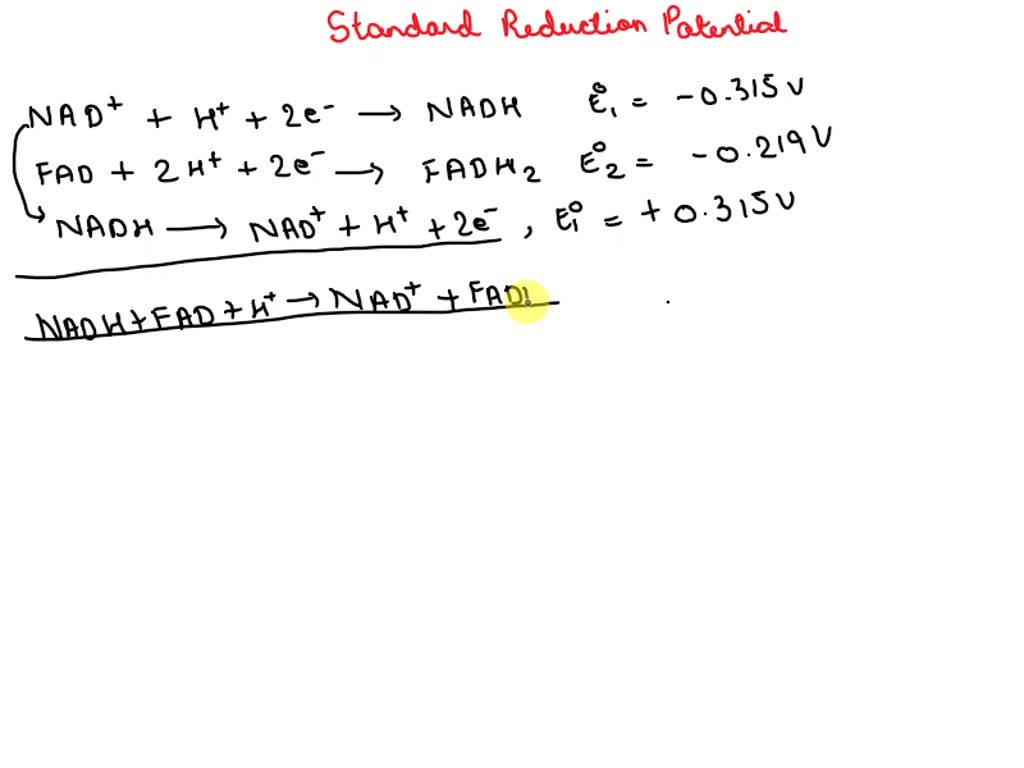 Standard Reduction Potential
NAD⁺ + H⁺ + 2e⁻ → NADH E°₁ = -0.315V
FAD + 2H⁺ + 2e⁻ → FADH₂ E°₂ = -0.219V
NADH → NAD⁺ + H⁺ + 2e⁻, E°₁ = +0.315V
NADH + FAD + H⁺ → NAD⁺ + FAD